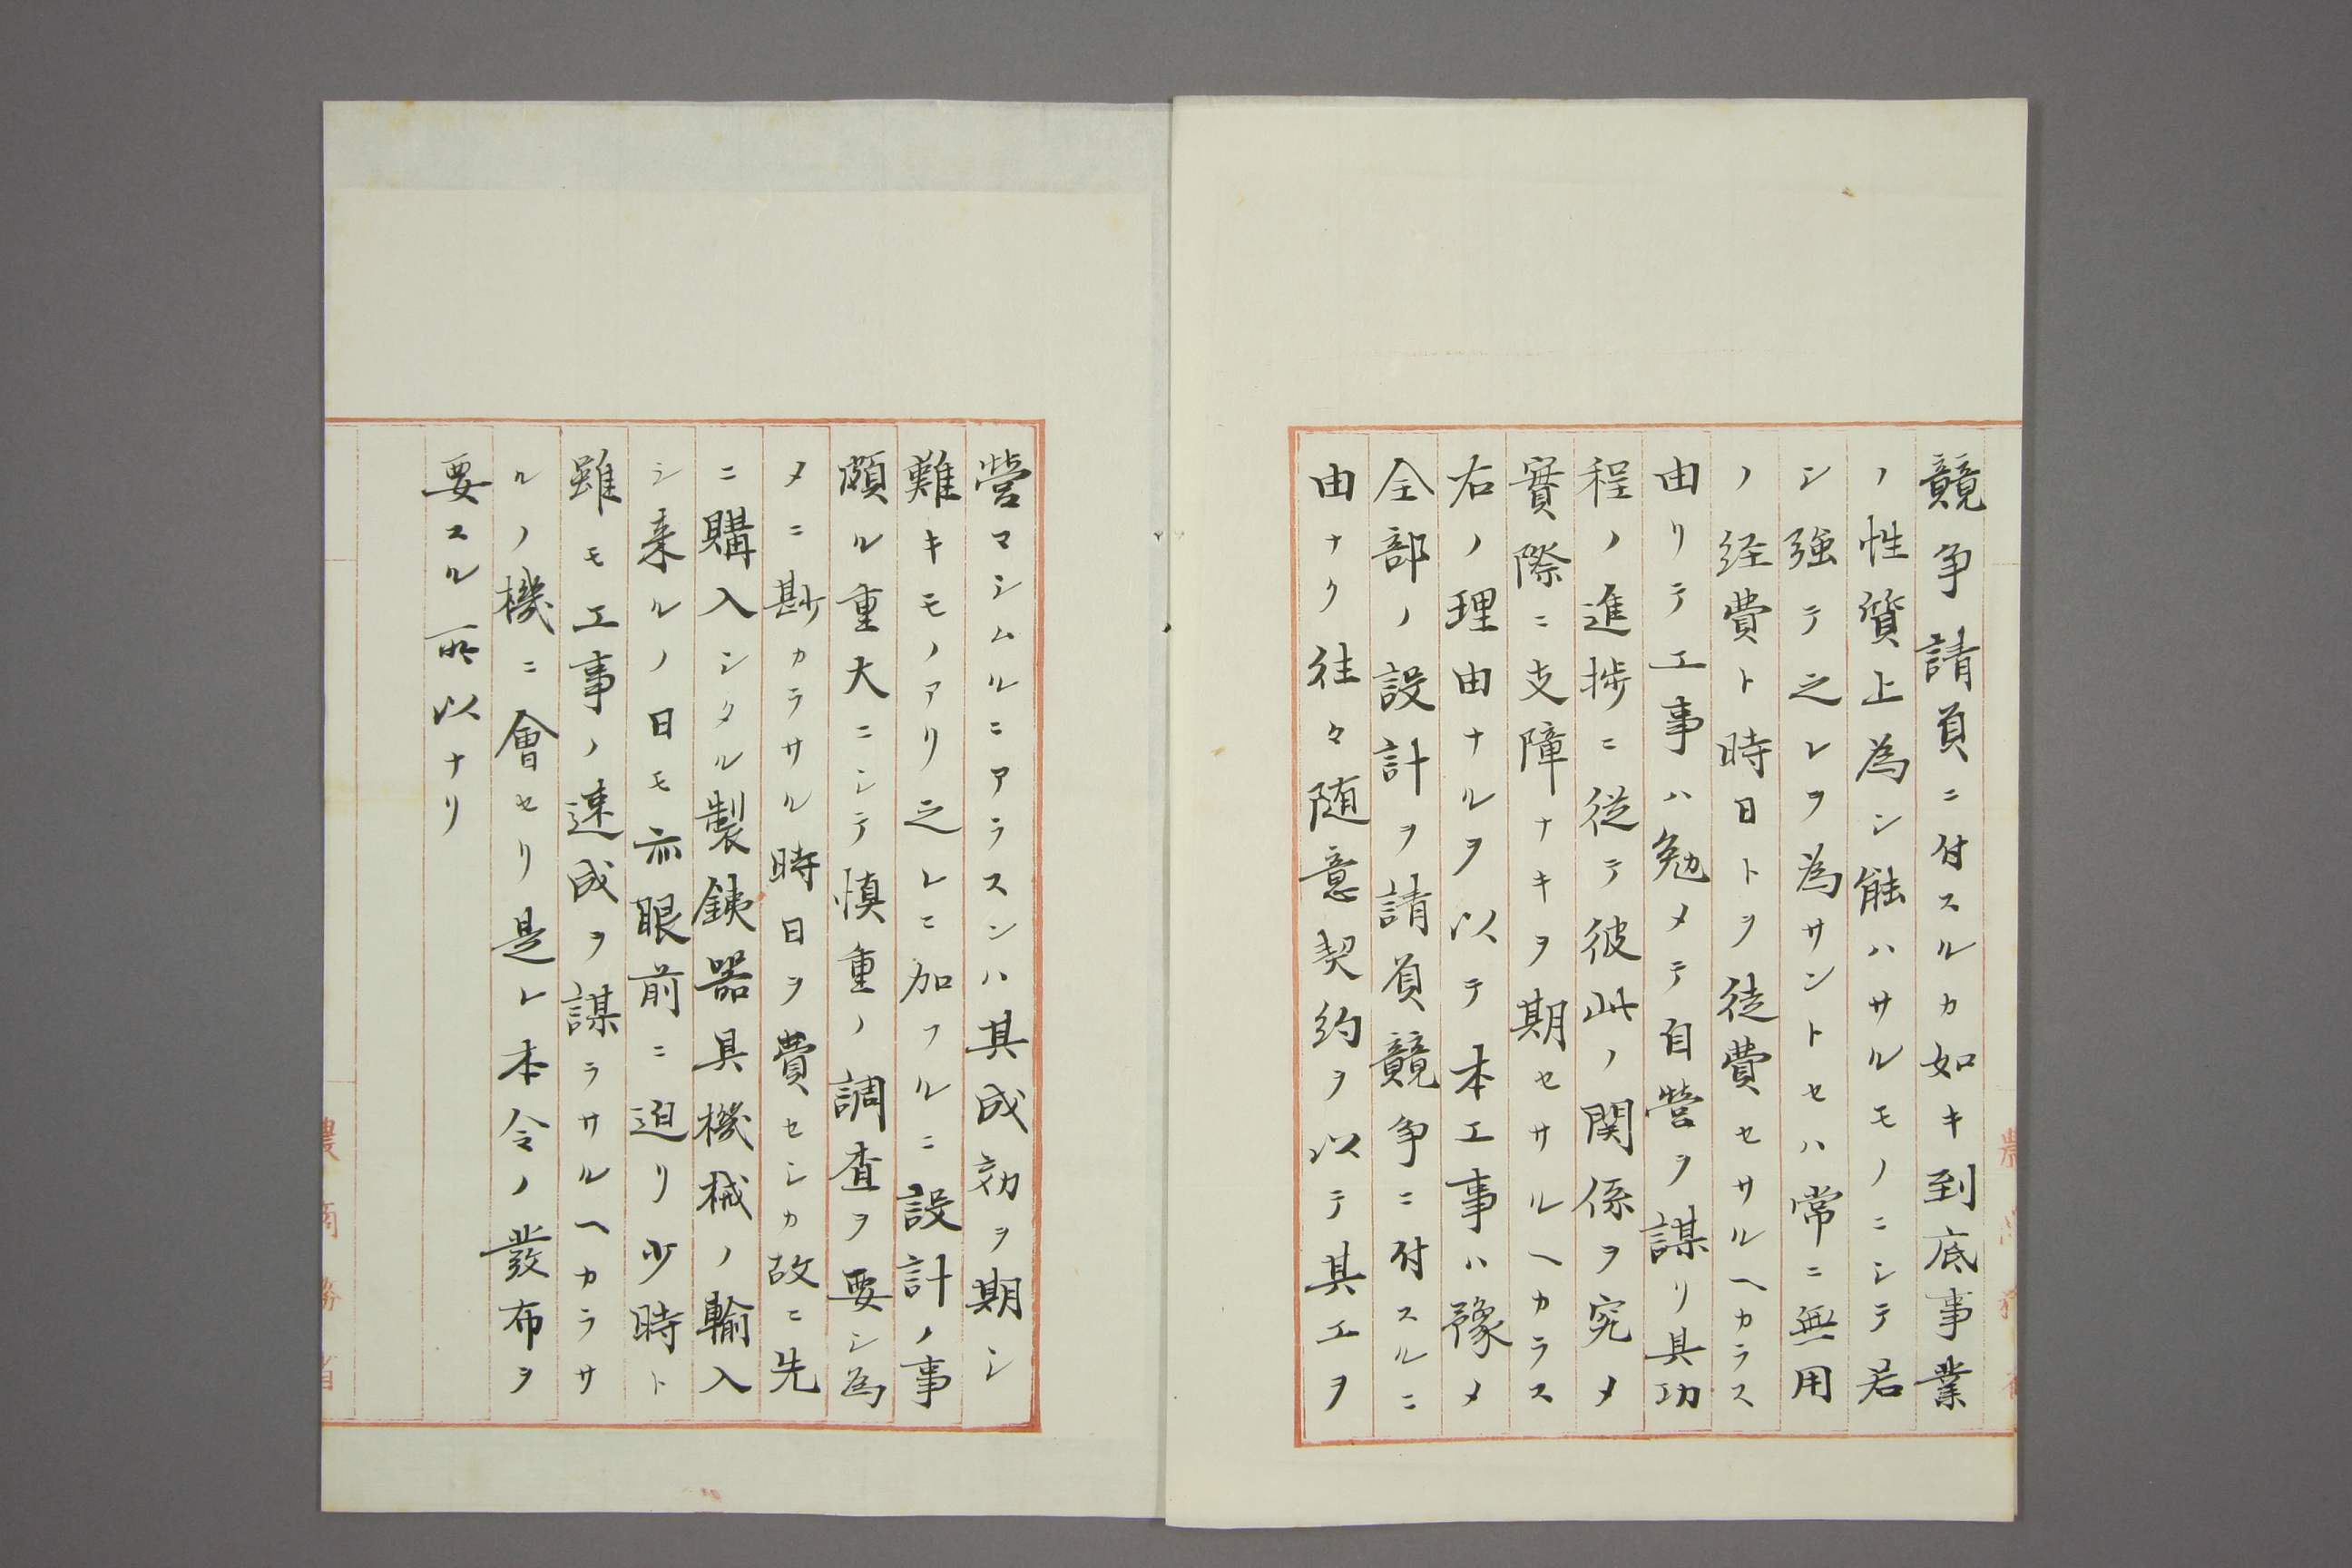 競争請負ニ付スルカ如キ到底事業
ノ性質上為シ能ハサルモノニシテ若
シ強テ之レヲ為サントセハ常ニ無用
ノ経費ト時日トヲ徒費セサルヘカラス
由リテ工事ハ勉メテ自營ヲ謀リ其功
程ノ進捗ニ従テ彼此ノ関係ヲ究メ
實際ニ支障ナキヲ期セサルヘカラス
右ノ理由ナルヲ以テ本工事ハ豫メ
全部ノ設計ヲ請負競争ニ付スルニ
由ナク往々随意契約ヲ以テ其工ヲ
營マシムルニアラスンハ其成効ヲ期シ
難キモノアリ之レニ加フルニ設計ノ事
頗ル重大ニシテ慎重ノ調査ヲ要シ為
メニ尠カラサル時日ヲ費セシカ故ニ先
ニ購入シタル製銕器具機械ノ輸入
シ来ルノ日モ亦眼前ニ迫リ少時ト
雖モ工事ノ速成ヲ謀ラサルヘカラサ
ルノ機ニ會セリ是レ本令ノ發布ヲ
要スル所以ナリ
農商務省